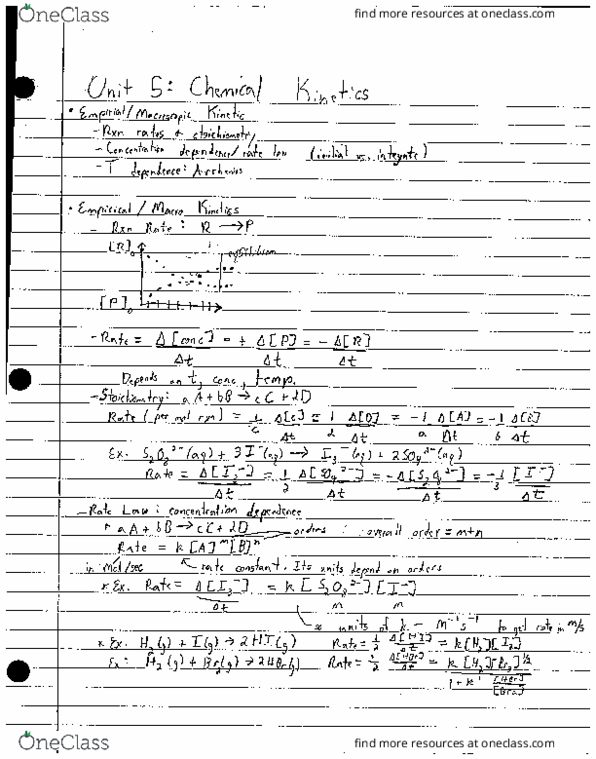 OneClass
find more resources at oneclass.com
Unit 5: Chemical Kinetics
• Empirial/Macroscopic Kinetic
- Rxn rates + stoichiometry
- Concentration dependence/rate law (initial vs. integrate)
- T dependence: Arrhenius
• Empirical / Macro Kinetics
- Rxn Rate: R → P
[R]₀
equilibrium
[P]₀
- Rate = Δ[conc]/Δt = + Δ[P]/Δt = - Δ[R]/Δt
Depends on t, conc, temp.
- Stoichiometry: aA + bB → cC + 2D
Rate (per mol rxn) = 1/c Δ[C]/Δt = 1/2 Δ[D]/Δt = -1/a Δ[A]/Δt = -1/b Δ[B]/Δt
Ex. S₂O₈²⁻(aq) + 3I⁻(aq) → I₃⁻(aq) + 2SO₄²⁻(aq)
Rate = Δ[I₃⁻]/Δt = 1/2 Δ[SO₄²⁻]/Δt = -Δ[S₂O₈²⁻]/Δt = -1/3 [I⁻]/Δt
- Rate Law: concentration dependence
aA + bB → cC + 2D orders : overall order = m+n
Rate = k[A]ᵐ[B]ⁿ
in mol/sec rate constant. Its units depend on orders
* Ex. Rate = Δ[I₃⁻]/Δt = k[S₂O₈²⁻][I⁻]
M M
units of k - M⁻¹s⁻¹ to get rate in M/s
* Ex. H₂(g) + I(g) → 2HI(g) Rate = 1/2 Δ[HI]/Δt = k[H₂][I₂]
Ex: H₂(g) + Br₂(g) → 2HBr(g) Rate = 1/2 Δ[HBr]/Δt = k[H₂][Br₂]^1/2 / 1 + k' [HBr]/[Br₂]
OneClass
find more resources at oneclass.com